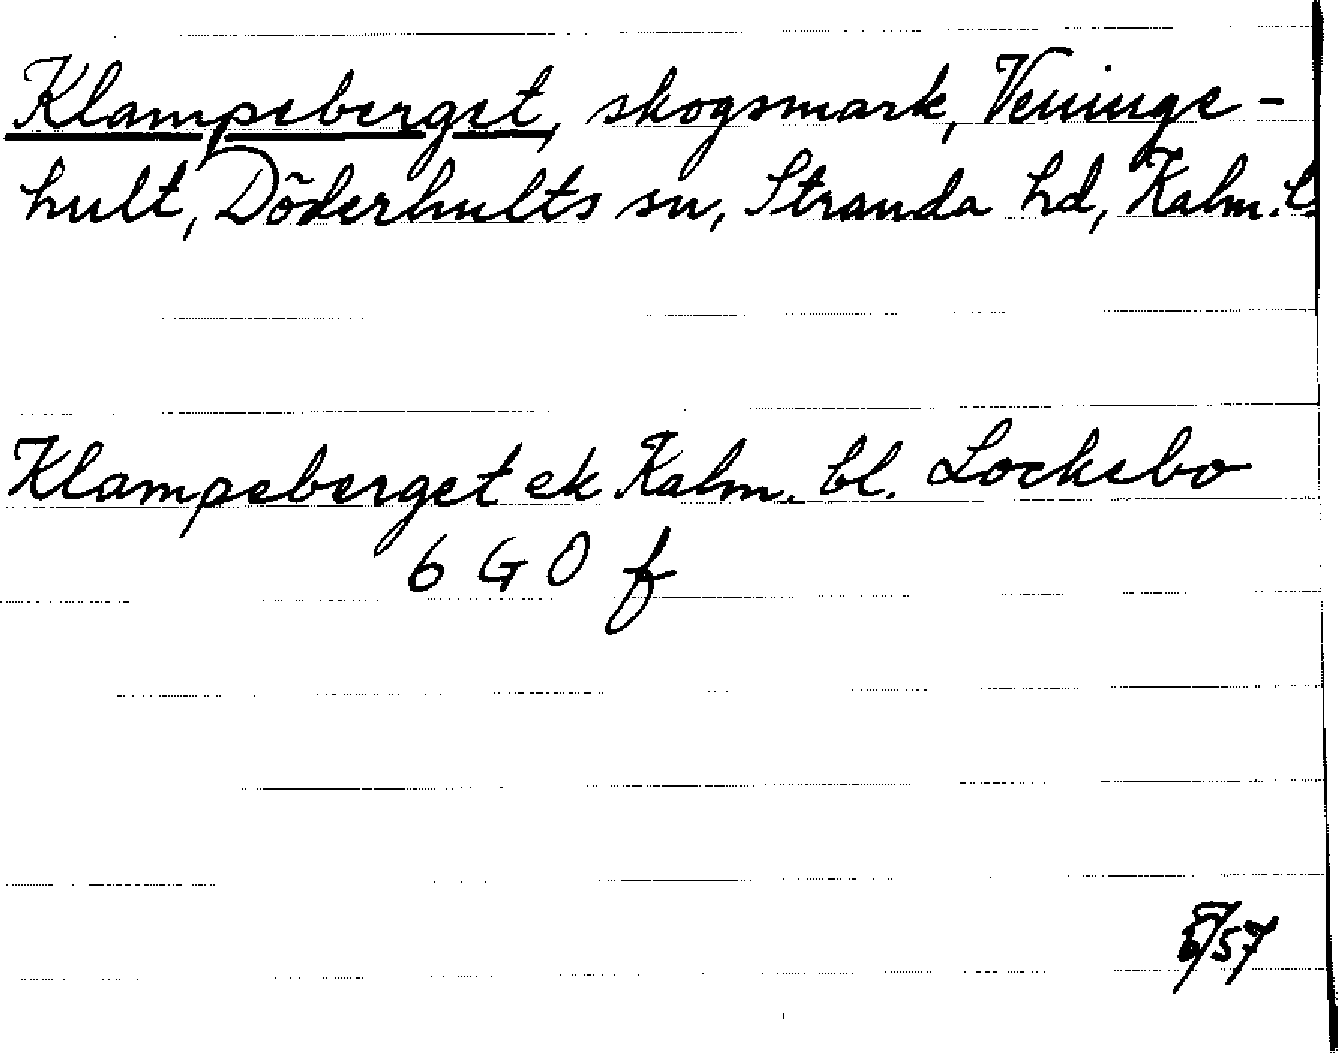 Klampeberget, skogsmark, Veninge-
hult, Döderhults sn, Stranda hd, Kalm. l.
Klampeberget ek Kalm. bl. Lockebo
6 G 0 f